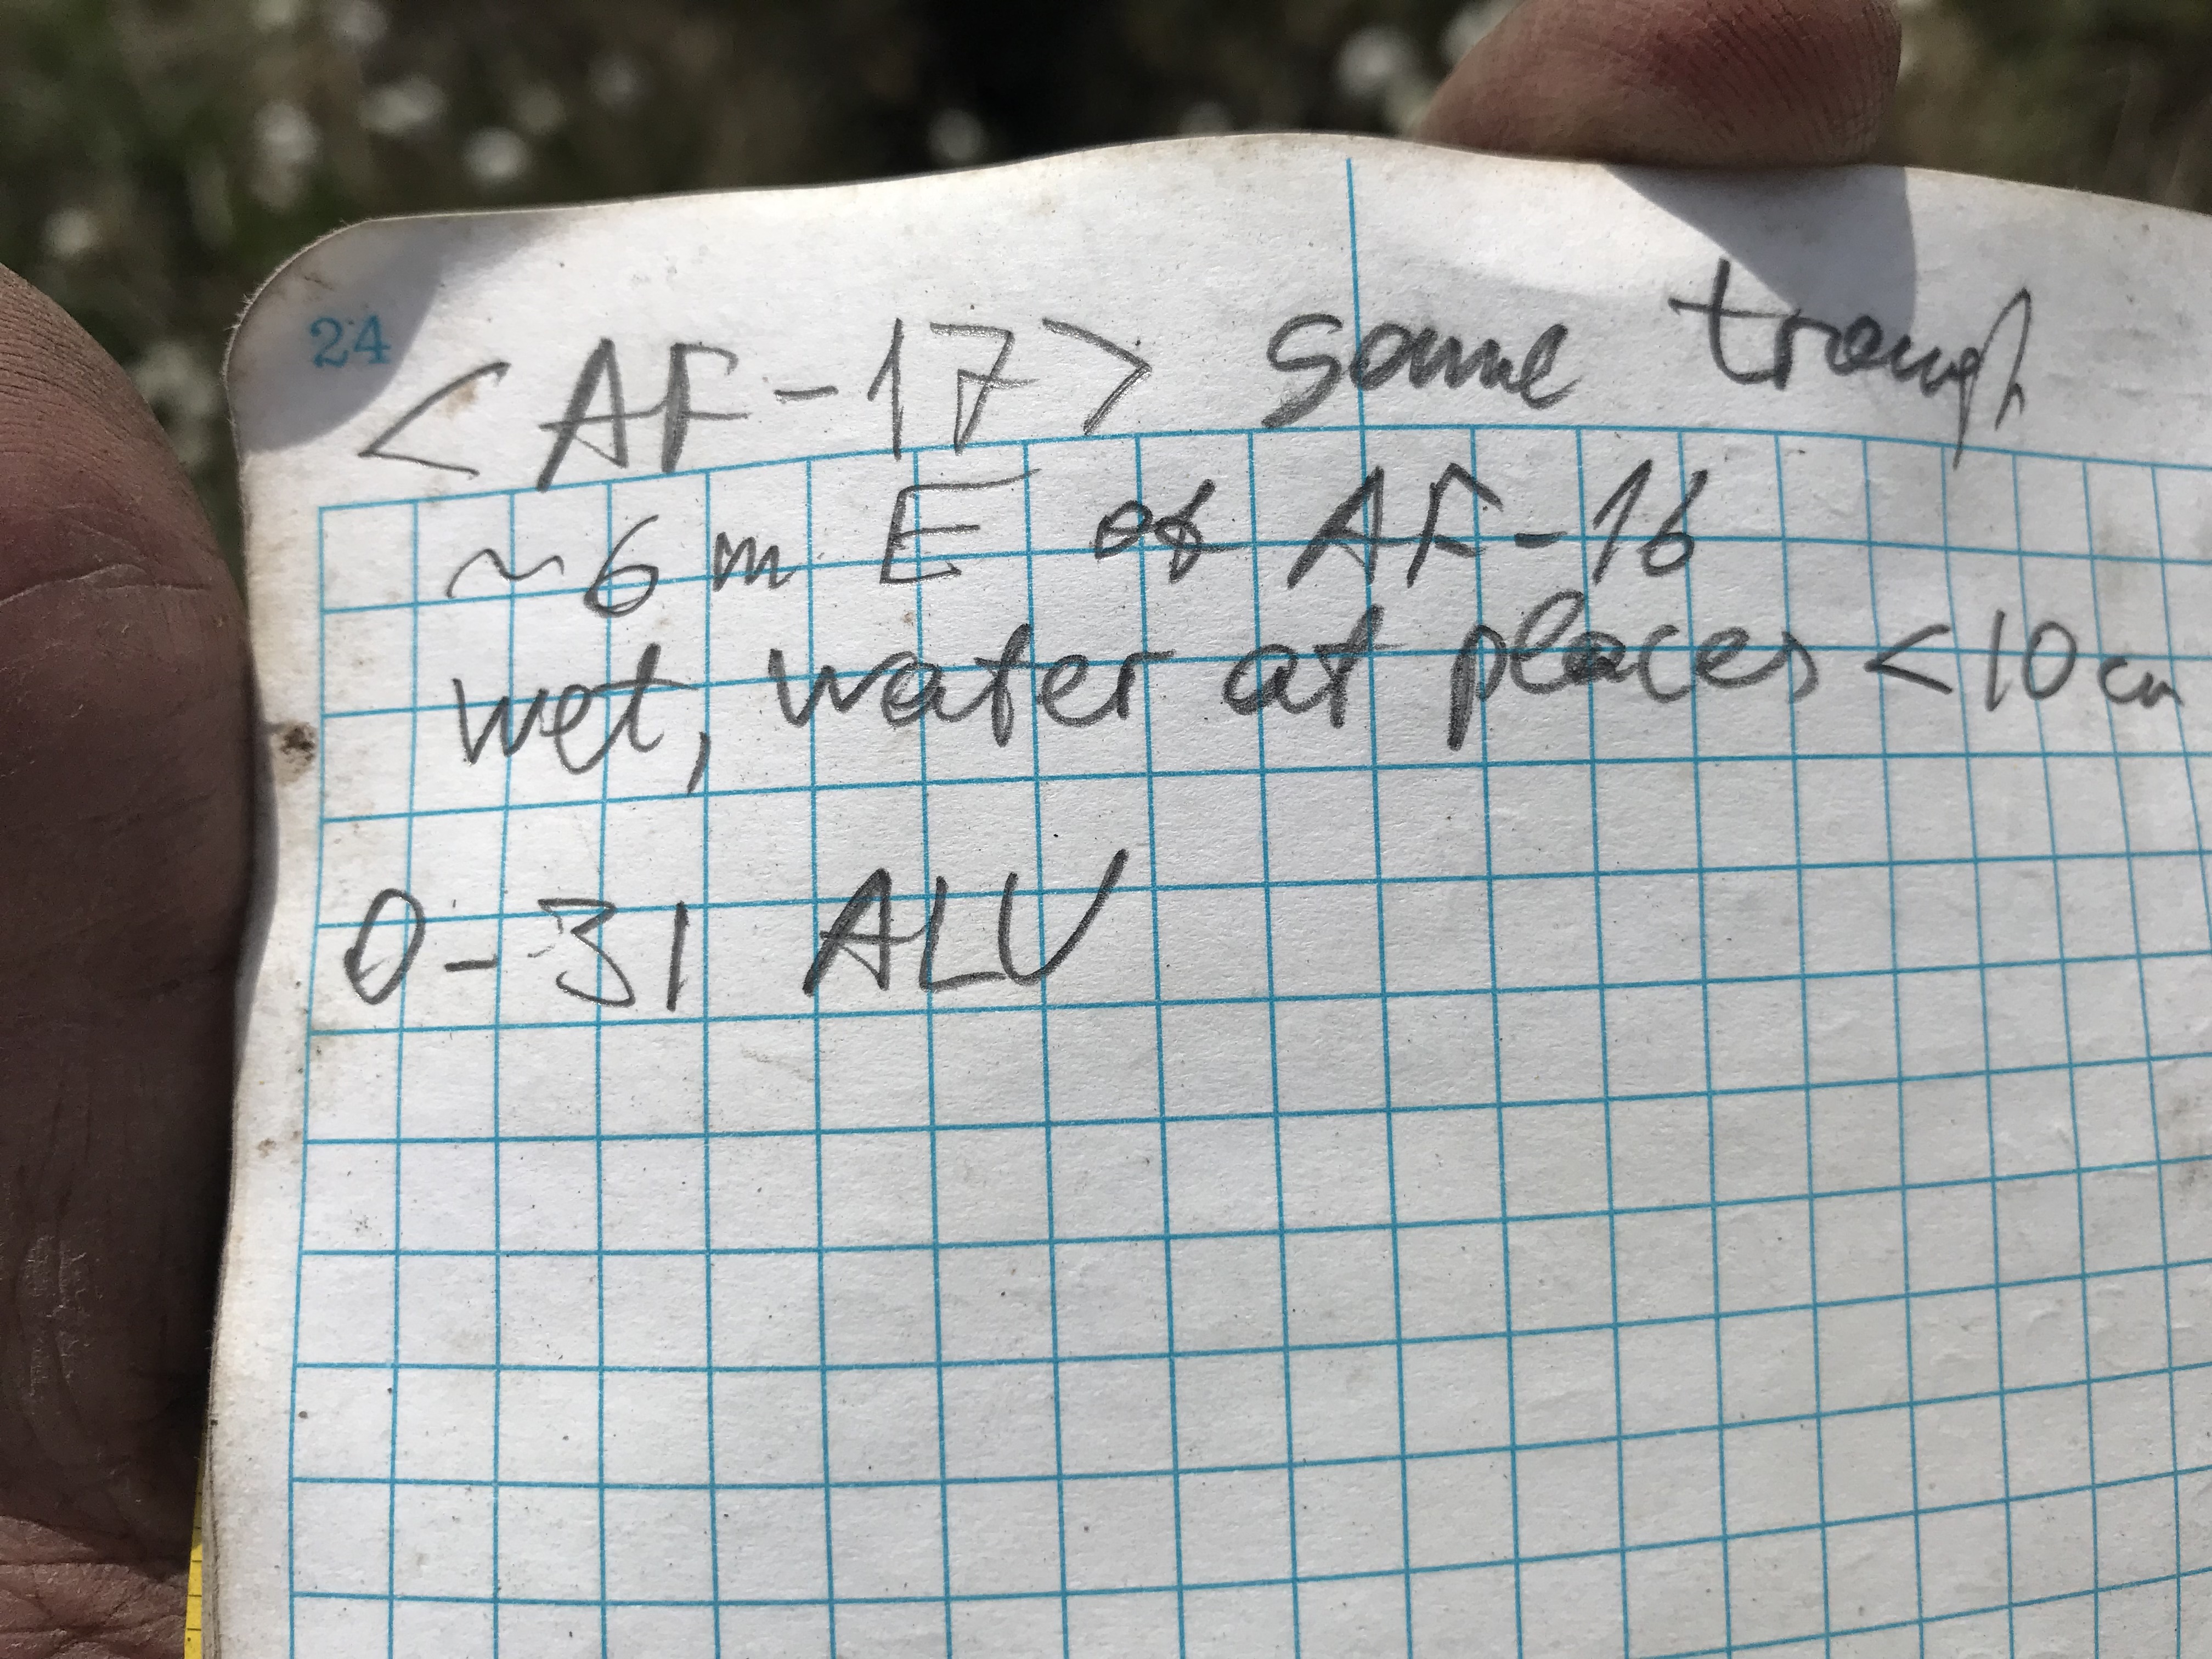 24
<AF-17> some trough
~6 m E of AF-16
wet, water at places <10 cm
0-31 ALU